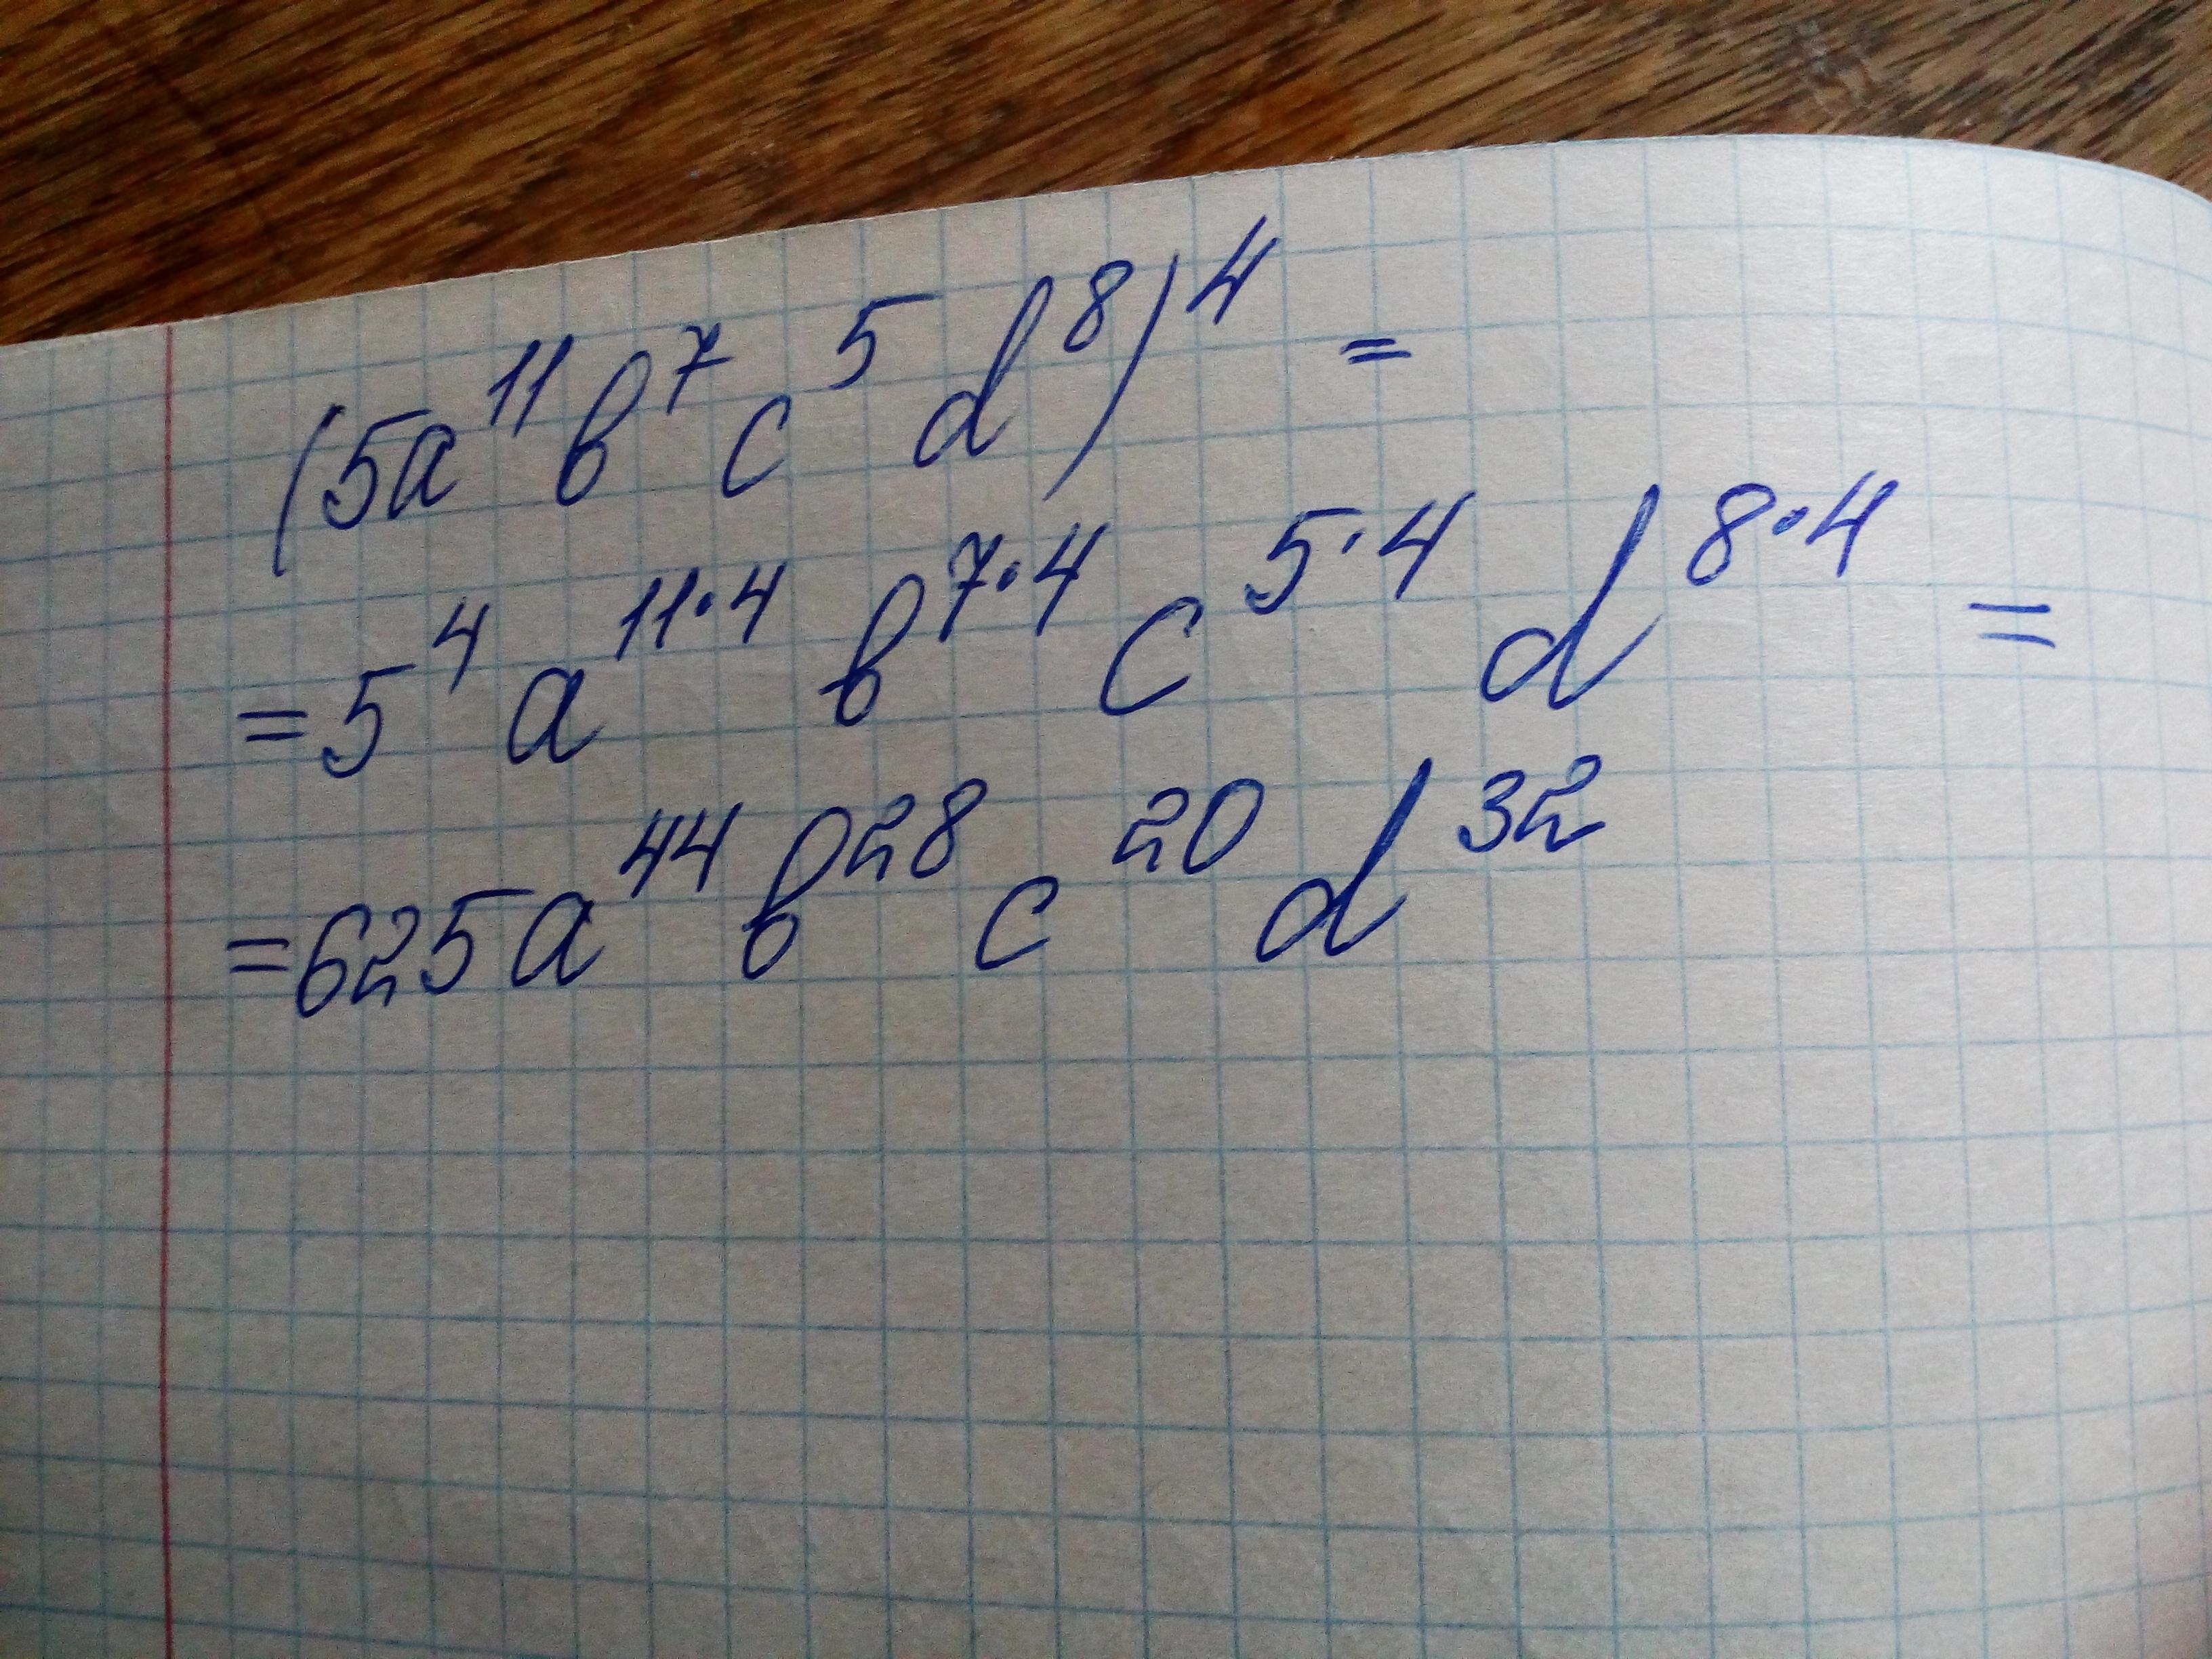 (5a¹¹b⁷c⁵d⁸)⁴ =
=5⁴a¹¹·⁴b⁷·⁴c⁵·⁴d⁸·⁴ =
=625a⁴⁴b²⁸c²⁰d³²